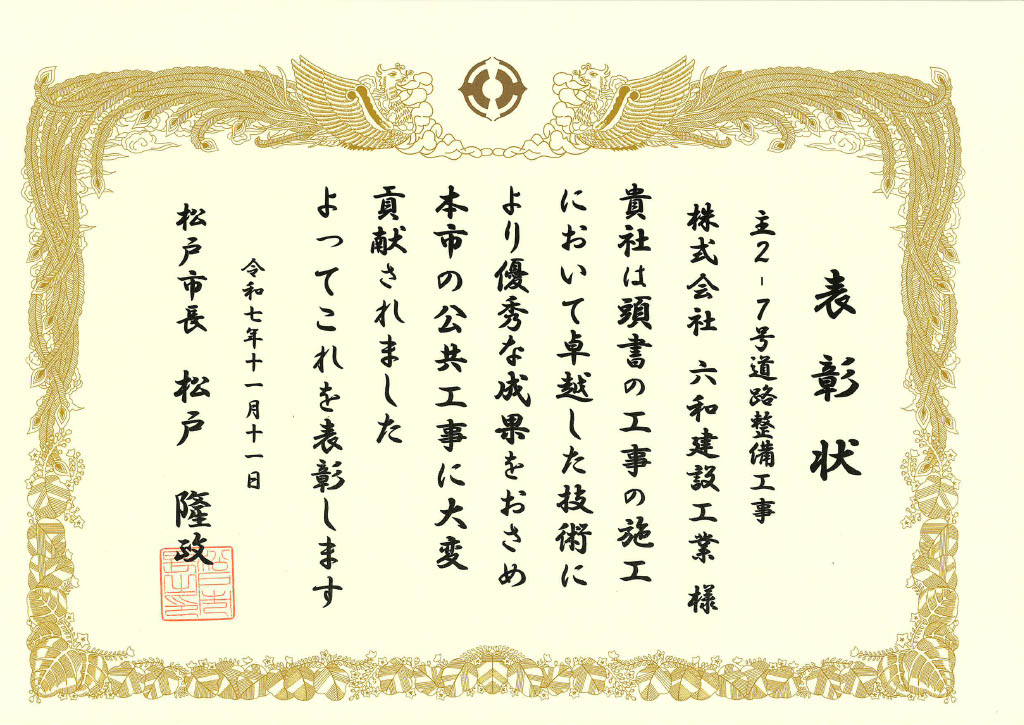 表彰状
主2-7号道路整備工事
株式会社 六和建設工業 様
貴社は頭書の工事の施工
において卓越した技術に
より優秀な成果をおさめ
本市の公共工事に大変
貢献されました
よってこれを表彰します
令和七年十一月十一日
松戸市長 松戸 隆政